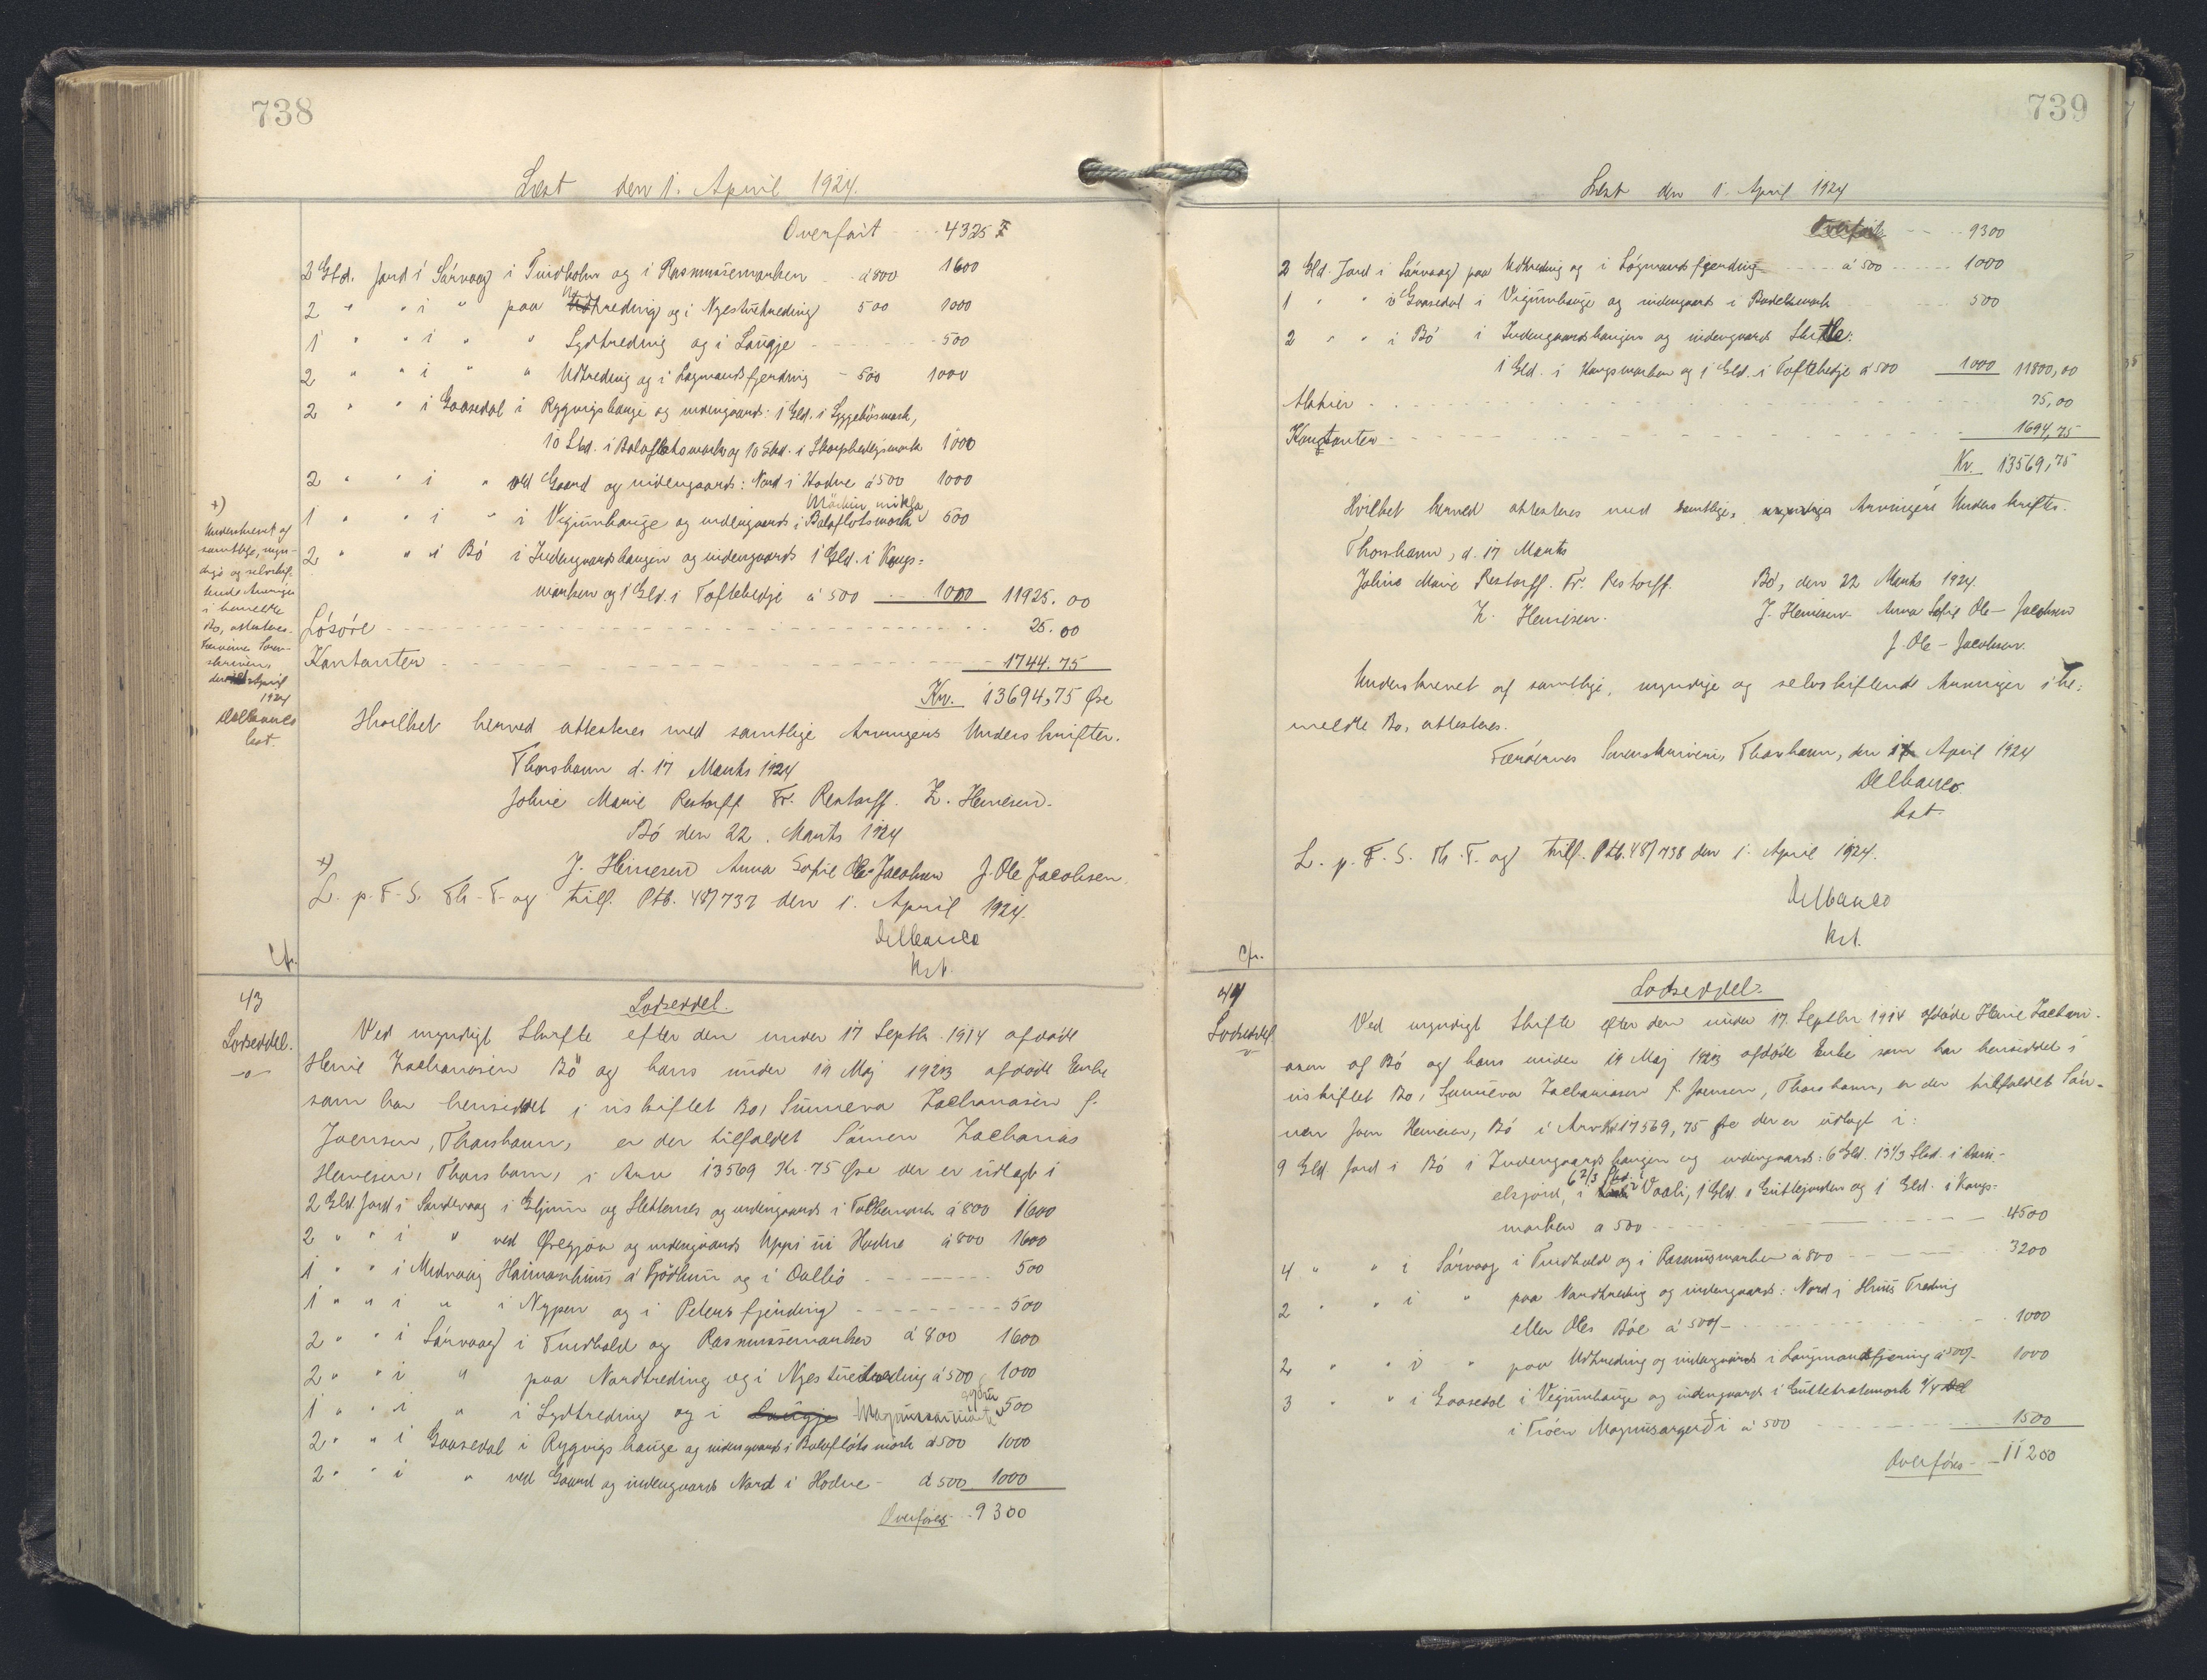 738
Læst den 1. April 1924.
Overført 4325
2 Gld. Jord i Sørvaag i Tindholm og i Rasmussemarken à 800 1600
2 " " i " paa Nordtreding og i Nyestuetreding 500 1000
1 " " i " " Sydtreding og i Laugje 500
2 " " i " " Udtreding og i Lagmandsfjerding 500 1000
2 " " i Gaasedal i Rygvigshauge og indengaards: 1 Gld. i Lyggebósmark,
10 Skd. i Balaflotsmark og 10 Skd. i Skarphedigsmark 1000
2 " " i " ved Gaard og indengaards: Nord i Hadne à 500 1000
1 " " i " i Vigünhauge og indengaards i Balaflotsmark 500
2 " " i Bó i Indengaardshaugen og indengaards 1 Gld. i Kongs=
marken og 1 Gld. i Toftehedje à 500 1000 11925.00
Lósóre 25.00
Kontanter 1744.75
Kr. 13694,75 Øre
Hvilket herved attesteres med samtlige Arvingers Underskrifter.
Thorshavn d. 17 Marts 1924
Joline Marie Restorff Fr. Restorff. Z. Heinesen.
Bó den 22. Marts 1924
+) J. Heinesen Anna Sofie Ole-Jacobsen J. Ole Jacobsen.
L. p. F. S. Th. T. og tilf. Ptb. 48/737 den 1. April 1924.
Delbanco
kst.
+)
Underskrevet af
samtlige, myn-
dige og selvskif-
tende Arvinger
i bemeldte
Bo, attesteres.
Færøernes Soren-
skriveri
den April
1924
Delbanco
kst.
Cfr.
43
Lodseddel.
Lodseddel.
Ved myndigt Skifte efter den under 17 Septbr. 1914 afdøde
Heine Zachariasen Bö og hans under 19 Maj 1923 afdøde Enke
som har hensiddet i uskiftet Bo, Sunneva Zachariasen f.
Joensen, Thorshavn, er der tilfaldet Sónnen Zacharias
Heinesen, Thorshavn, i Arv 13569 Kr. 75 Øre der er udlagt i
2 Gld. Jord i Sandevaag i Gljúun og Slettenes og indengaards i Tolkemark à 800 1600
2 " " i " ved Óregjov og indengaards Uppi úi Hadne à 800 1600
1 " " i Midvaag Heimanhuus á Fjødlun og i Dalbó 500
1 " " i " i Nypen og i Petersfjerding 500
2 " " i Sórvaag i Tindhold og Rasmussemarken à 800 1600
2 " " i " paa Nordtreding og i Nyestuetreding à 500 1000
1 " " i " i Sydtreding og i 500
2 " " i Gaasedal i Rygvigshauge og indengaards i Balaflótsmark à 500 1000
2 " " i " ved Gaard og indengaards Nord i Hodne à 500 1000
Overføres 9300
739
Læst den 1. April 1924
Overført 9300
2 Gld. Jord i Sórvaag paa Udtreding og i Lógmandsfjerding à 500 1000
1 " " i Gaasedal i Vigünhauge og indengaards i Bodelsmark 500
2 " " i Bó i Indengaardshaugen og indengaards Skifte:
1 Gld. i Kongsmarken og 1 Gld. i Toftehedje à 500 1000 11800,00
Aktier 75,00
Kontanter 1694,75
Kr. 13569,75
Hvilket herved attesteres med samtlige, myndige Arvingers Underskrifter.
Thorshavn, d. 17 Marts
Joline Marie Restorff. Fr. Restorff. Bó, den 22 Marts 1924.
Z. Heinesen. J. Heinesen Anna Sofie Ole-Jacobsen
J. Ole-Jacobsen.
Underskrevet af samtlige, myndige og selvskiftende Arvinger i be=
meldte Bo, attesteres.
Færóernes Sorenskriveri, Thorshavn, den April 1924
Delbanco.
kst.
L. p. F. S. Th. T. og tilf. Ptb. 48/738 den 1. April 1924.
Delbanco
kst.
Cfr.
44
Lodseddel
Lodseddel.
Ved myndigt Skifte efter den under 17. Septbr 1914 afdøde Heine Zachari-
asen af Bó og hans under 19 Maj 1923 afdøde Enke som har hensiddet i
uskiftet Bo, Sunneva Zachariasen f. Joensen, Thorshavn, er der tilfaldet Són-
nen Joen Heinesen, Bó i Arv Kr 17569,75 Øre der er udlagt i:
9 Gld Jord i Bó i Indengaardshaugen og indengaards: 6 Gld. 13 1/3 Skd. i
elsjord, 6 2/3 Skd. i Vaali, 1 Gld. i Gúttejorden og 1 Gld. i Kongs-
marken a 500 4500
4 " " i Sórvaag i Tindhold og i Rasmusmarken à 800 3200
2 " " i " paa Nordtredig og indengaards: Nord i Húus Treding
eller Oles Bóe à 500/- 1000
2 " " i " paa Udtreding og indengaards i Laugmandsfjering à 500/- 1000
3 " " i Gaasedal i Vigünhauge og indengaards i 1/4 Del
i Tróen Magnusargerði à 500 1500
Overfóres 11200